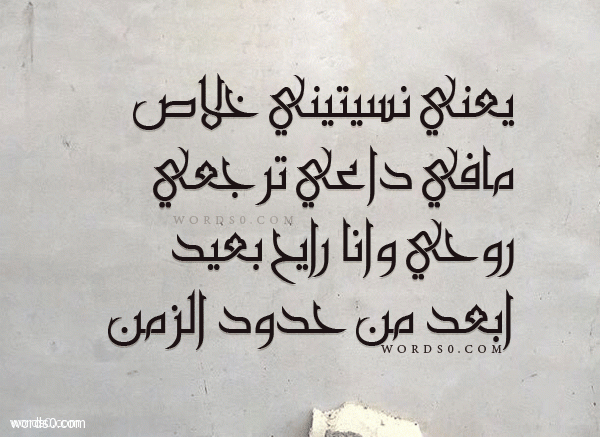 يعني نسيتيني خلاص
مافي داعي ترجعي
WORDS0.COM
روحي وانا رايح بعيد
ابعد من حدود الزمن
WORDS0.COM
words0.com